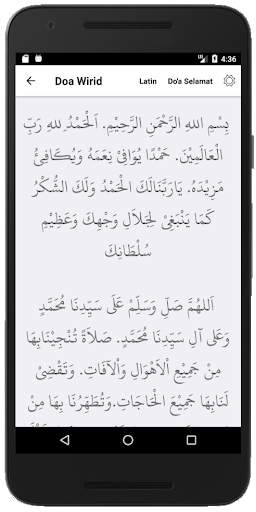 4:36
Doa Wirid Latin Do'a Selamat
بِسْمِ اللهِ الرَّحْمَنِ الرَّحِيْمِ. اَلْحَمْدُ ِللهِ رَبِّ
الْعَالَمِيْنَ. حَمْدًا يُوَافِيْ نِعَمَهُ وَيُكَافِئُ
مَزِيْدَهُ. يَارَبَّنَالَكَ الْحَمْدُ وَلَكَ الشُّكْرُ
كَمَا يَنْبَغِيْ لِجَلاَلِ وَجْهِكَ وَعَظِيْمِ
سُلْطَانِكَ
اَللهُمَّ صَلِّ وَسَلِّمْ عَلَى سَيِّدِنَا مُحَمَّدٍ
وَعَلَى آلِ سَيِّدِنَا مُحَمَّدٍ. صَلاَةً تُنْجِيْنَابِهَا
مِنْ جَمِيْعِ اْلاَهْوَالِ وَاْلآفَاتِ. وَتَقْضِىْ
لَنَابِهَا جَمِيْعَ الْحَاجَاتِ.وَتُطَهِّرُنَا بِهَا مِنْ